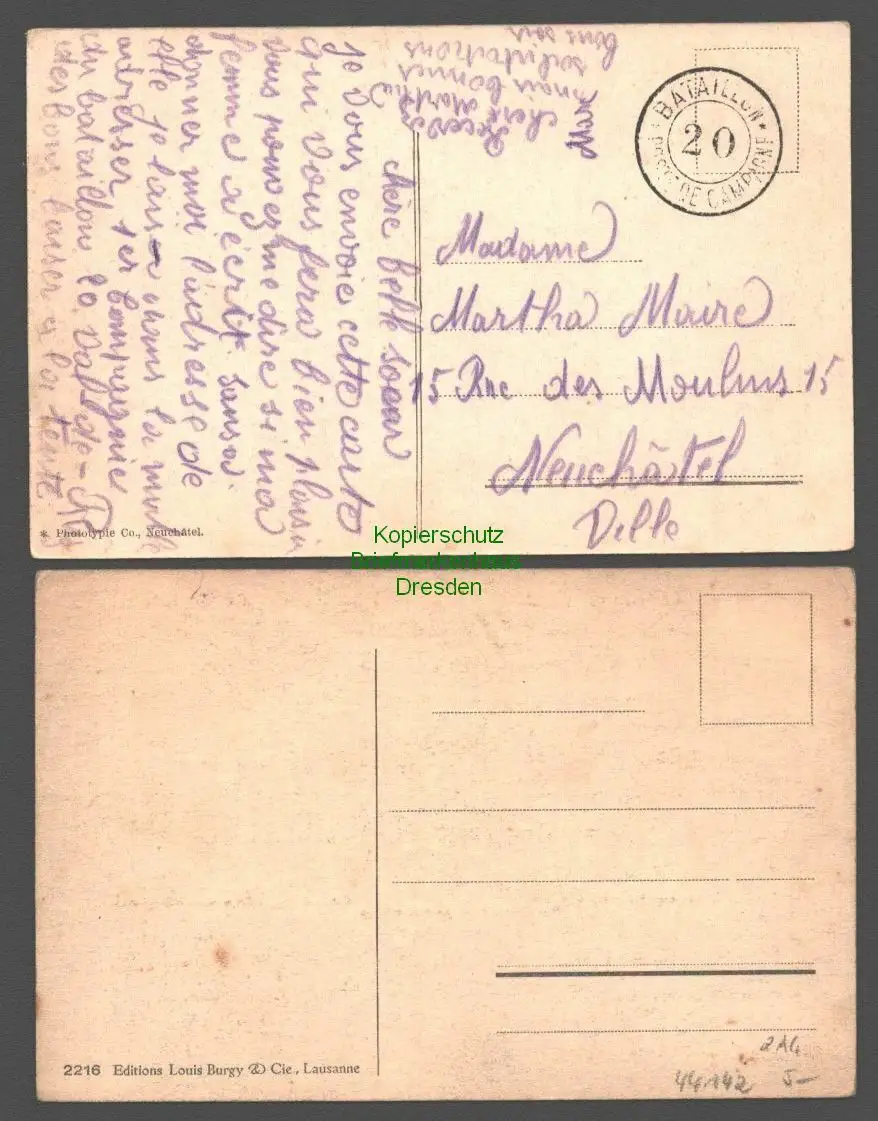 chère belle soeur
je vous envoie cette carte
qui vous fera bien plaisir
vous pouvez me dire si ma
femme a écrit sansa
donner moi l'adresse de
elle je laisse
adresser 1er Compagnie
du bataillon 20. Val-de-R
des bons baiser
Recevez
chère Martha
mair bonnes
salutations
bons soir
BATAILLON
20
POSTE DE CAMPAGNE
Madame
Martha Maire
15 Rue des Moulins 15
Neuchâtel
Ville
* Phototypie Co., Neuchâtel.
Kopierschutz
Dresden
2216 Editions Louis Burgy & Cie., Lausanne
214
44142 5-